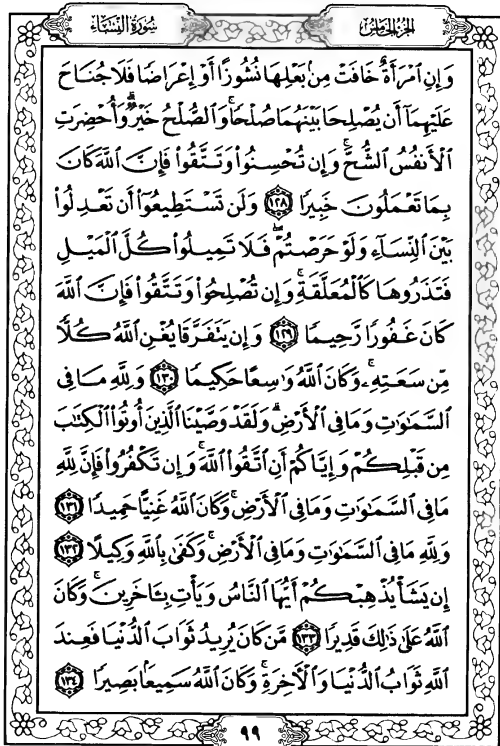 سُورَةُ النِّسَاءِ
الجُزْءُ الخَامِسُ
وَإِنِ ٱمْرَأَةٌ خَافَتْ مِنۢ بَعْلِهَا نُشُوزًا أَوْ إِعْرَاضًا فَلَا جُنَاحَ
عَلَيْهِمَآ أَن يُصْلِحَا بَيْنَهُمَا صُلْحًا ۚ وَٱلصُّلْحُ خَيْرٌ ۗ وَأُحْضِرَتِ
ٱلْأَنفُسُ ٱلشُّحَّ ۚ وَإِن تُحْسِنُوا۟ وَتَتَّقُوا۟ فَإِنَّ ٱللَّهَ كَانَ
بِمَا تَعْمَلُونَ خَبِيرًا ١٢٨ وَلَن تَسْتَطِيعُوٓا۟ أَن تَعْدِلُوا۟
بَيْنَ ٱلنِّسَآءِ وَلَوْ حَرَصْتُمْ ۖ فَلَا تَمِيلُوا۟ كُلَّ ٱلْمَيْلِ
فَتَذَرُوهَا كَٱلْمُعَلَّقَةِ ۚ وَإِن تُصْلِحُوا۟ وَتَتَّقُوا۟ فَإِنَّ ٱللَّهَ
كَانَ غَفُورًا رَّحِيمًا ١٢٩ وَإِن يَتَفَرَّقَا يُغْنِ ٱللَّهُ كُلًّا
مِّن سَعَتِهِۦ ۚ وَكَانَ ٱللَّهُ وَٰسِعًا حَكِيمًا ١٣٠ وَلِلَّهِ مَا فِى
ٱلسَّمَٰوَٰتِ وَمَا فِى ٱلْأَرْضِ ۗ وَلَقَدْ وَصَّيْنَا ٱلَّذِينَ أُوتُوا۟ ٱلْكِتَٰبَ
مِن قَبْلِكُمْ وَإِيَّاكُمْ أَنِ ٱتَّقُوا۟ ٱللَّهَ ۚ وَإِن تَكْفُرُوا۟ فَإِنَّ لِلَّهِ
مَا فِى ٱلسَّمَٰوَٰتِ وَمَا فِى ٱلْأَرْضِ ۚ وَكَانَ ٱللَّهُ غَنِيًّا حَمِيدًا ١٣١
وَلِلَّهِ مَا فِى ٱلسَّمَٰوَٰتِ وَمَا فِى ٱلْأَرْضِ ۚ وَكَفَىٰ بِٱللَّهِ وَكِيلًا ١٣٢
إِن يَشَأْ يُذْهِبْكُمْ أَيُّهَا ٱلنَّاسُ وَيَأْتِ بِـَٔاخَرِينَ ۚ وَكَانَ
ٱللَّهُ عَلَىٰ ذَٰلِكَ قَدِيرًا ١٣٣ مَّن كَانَ يُرِيدُ ثَوَابَ ٱلدُّنْيَا فَعِندَ
ٱللَّهِ ثَوَابُ ٱلدُّنْيَا وَٱلْـَٔاخِرَةِ ۚ وَكَانَ ٱللَّهُ سَمِيعًۢا بَصِيرًا ١٣٤
٩٩